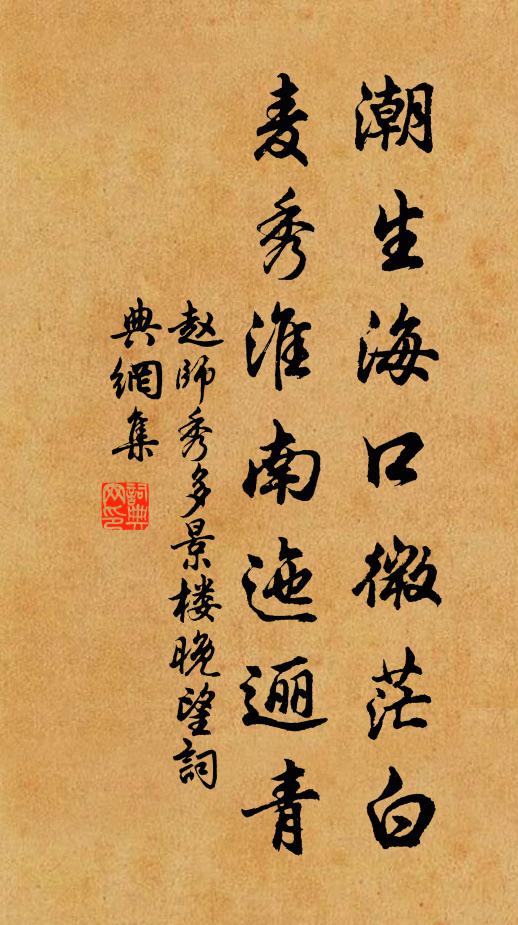 潮生海口微茫白
麦秀淮南迤逦青
赵師秀多景楼晚望詞
典網集
詞典
网印